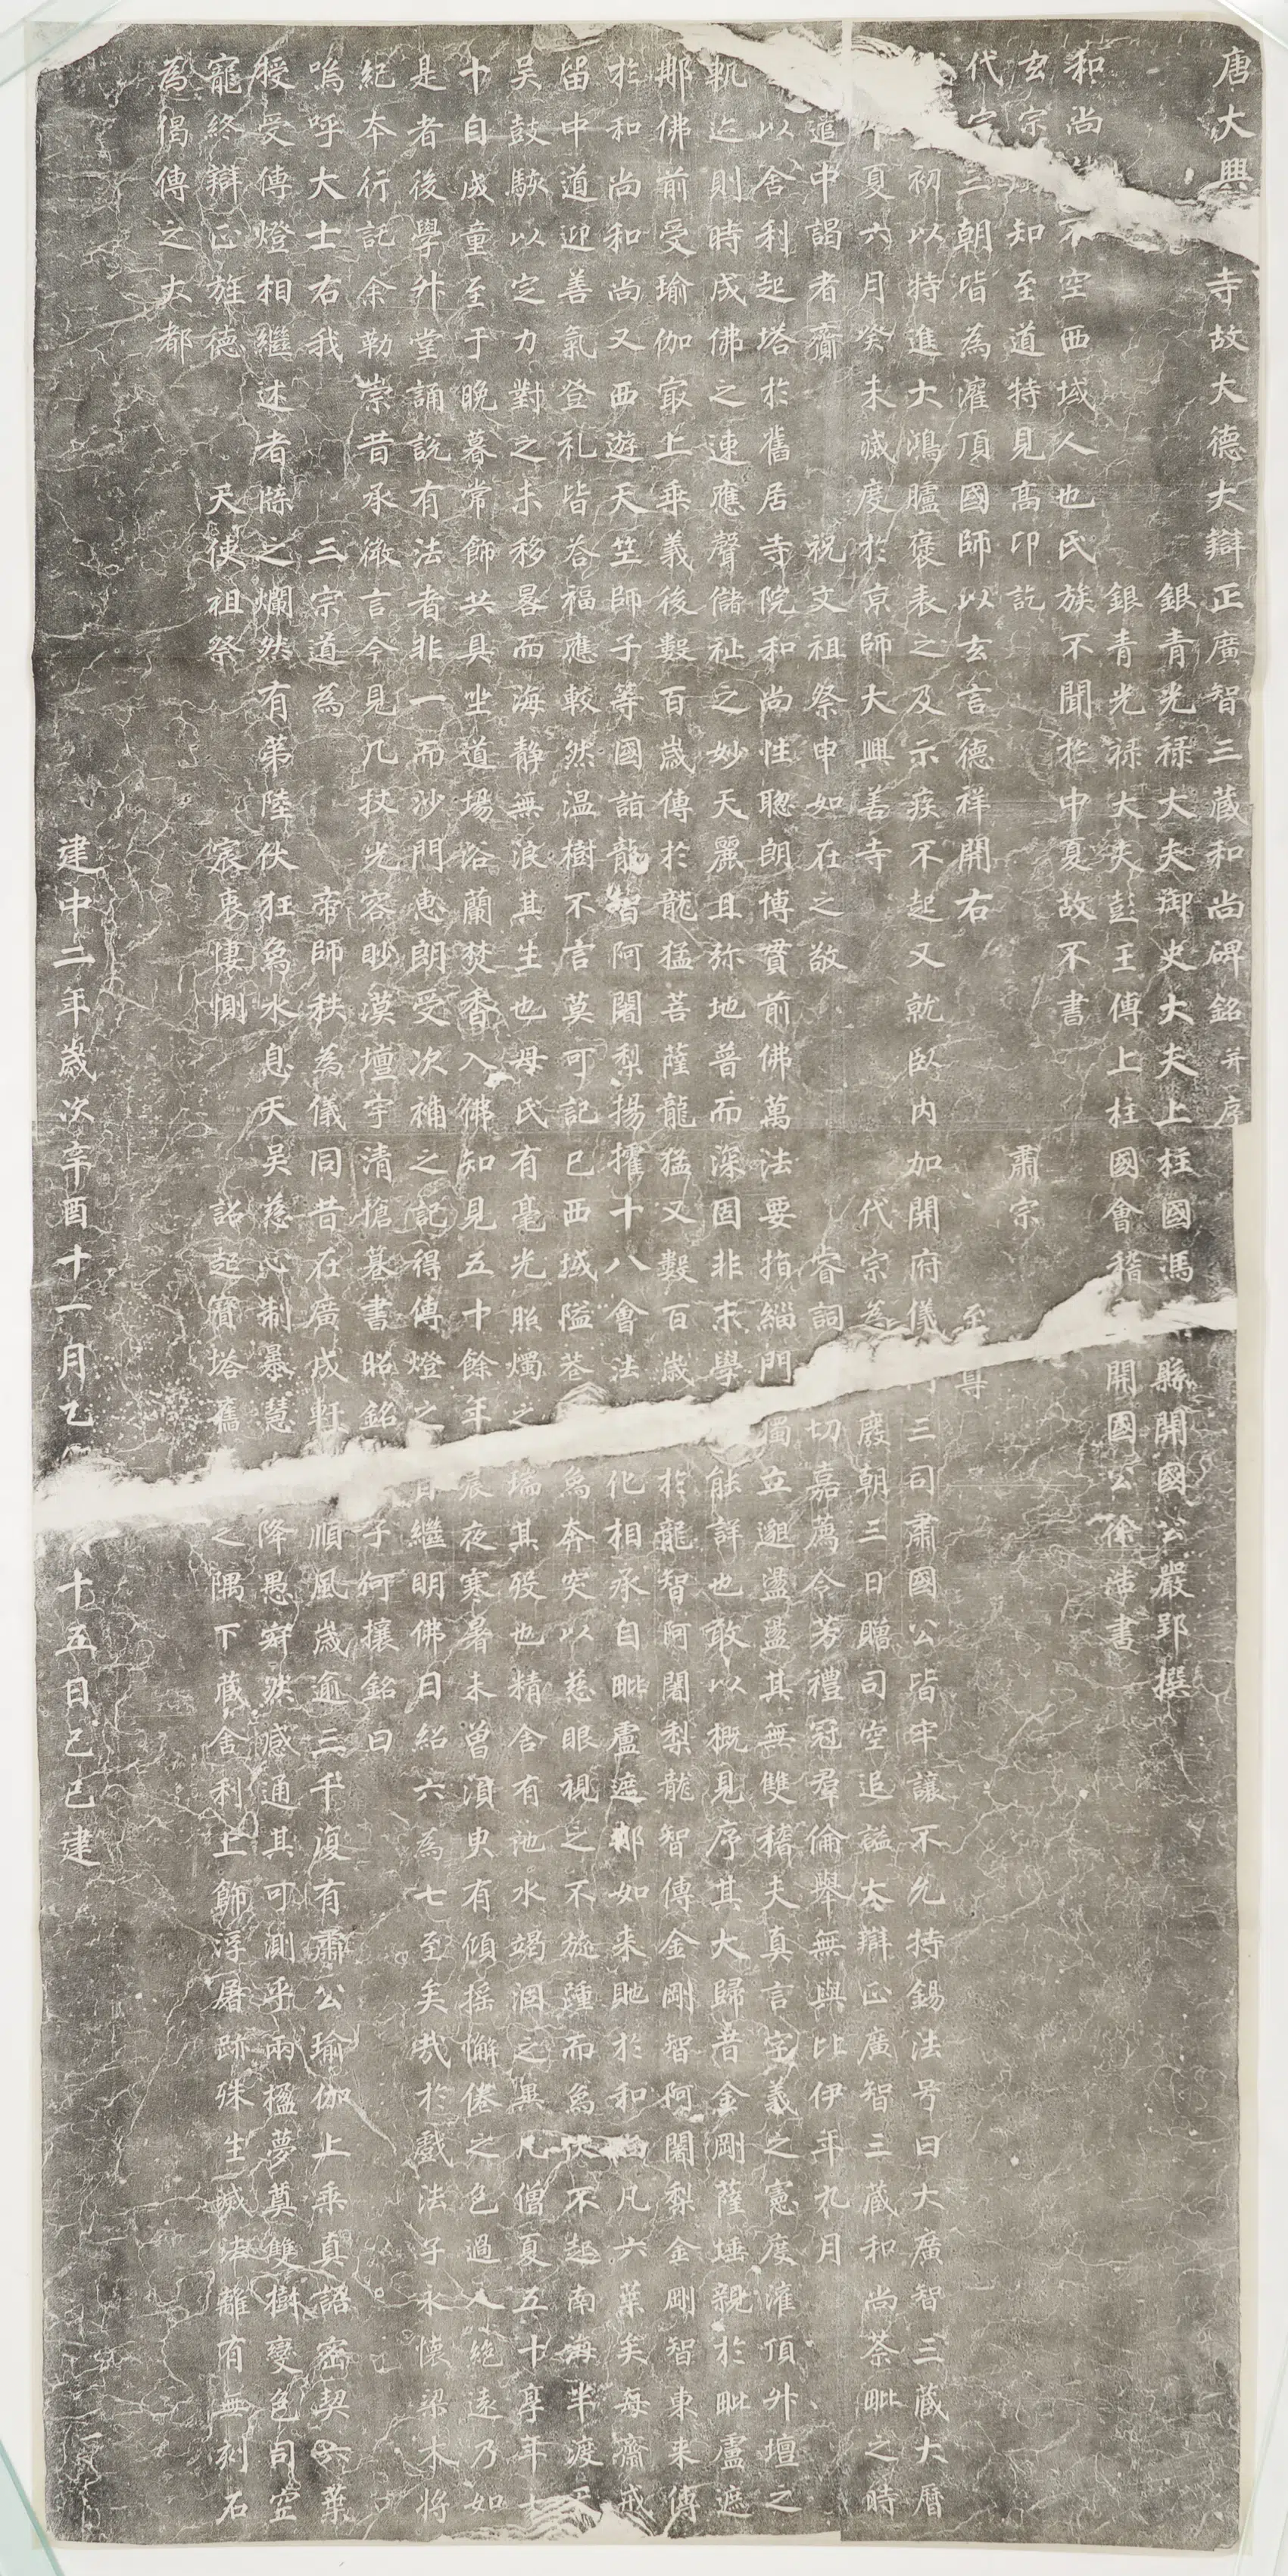 唐大興寺故大德大辯正廣智三藏和尚碑銘并序
銀青光祿大夫御史大夫上柱國馮縣開國公嚴郢撰
銀青光祿大夫彭王傅上柱國會稽開國公徐浩書
和尚不空西域人也氏族不聞於中夏故不書
玄宗知至道特見高卬訖肅宗
代宗三朝皆為灌頂國師以玄言德祥開右至尊
初以特進大鴻臚褒表之及示疾不起又就臥內加開府儀三司肅國公皆牢讓不允特錫法号曰大廣智三藏大曆
夏六月癸未滅度於京師大興善寺代宗為廢朝三日贈司空追謚大辯正廣智三藏和尚荼毗之時
遣中謁者齎祝文祖祭申如在之敬睿詞切嘉薦令芳禮冠群倫舉無與比伊年九月
以舍利起塔於舊居寺院和尚性聰朗博貫前佛萬法要指緇門獨立邈盪盪其無雙稽夫真言字義之憲度灌頂升壇之
軌迹則時成佛之速應聲儲祉之妙天麗且弥地普而深固非末學能詳也敢以概見序其大歸昔金剛薩埵親於毗盧遮
那佛前受瑜伽最上乘義後數百歲傳於龍猛菩薩龍猛又數百歲於龍智阿闍梨龍智傳金剛智阿闍梨金剛智東來傳
於和尚和尚又西遊天竺師子等國詣龍智阿闍梨揚攉十八會法化相承自毗盧遮那如來貤於和尚凡六葉矣每齋戒
留中道迎善氣登礼皆荅福應較然温樹不言莫可記已西域隘巷為奔突以慈眼視之不旋踵而為伏不起南海半渡
吴鼓駭以定力對之未移晷而海靜無浪其生也母氏有毫光照燭之瑞其歿也精舍有池水竭涸之異凡僧夏五十享年七
十自成童至于晚暮常飾共具坐道場浴蘭焚香入佛知見五十餘年晨夜寒暑未曾湏臾有傾摇懈倦之色過人絕遠乃如
是者後學升堂誦說有法者非一而沙門惠朗受次補之記得傳燈之旨繼明佛日紹六為七至矣哉於戲法子永懷梁木將
紀本行託余勒崇昔承徽言今見几杖光容眇漠壇宇清愴篹書昭銘子何攘銘曰
嗚呼大士右我三宗道為帝師秩為儀同昔在廣成軒順風歲逾三千復有肅公瑜伽上乘真詔密契六葉
授受傳燈相繼述者牒之爛然有第陸伏狂為水息天吴慈心制暴慧降愚寂然感通其可測乎兩楹夢奠雙樹變色司空
寵終辯正旌德天使祖祭宸衷悽惻詔起寶塔舊之隅下藏舍利上飾浮屠跡殊生滅法離有無刻石
為偈傳之大都
建中二年歲次辛酉十一月乙十五日己巳建